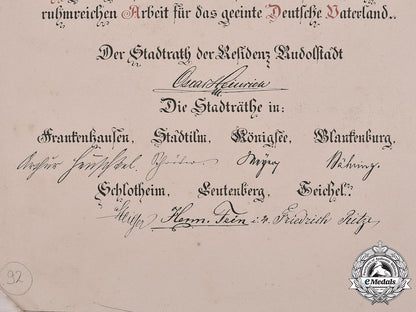 ruhmreichen Arbeit für das geeinte Deutsche Vaterland.
Der Stadtrath der Residenz Rudolstadt
Oscar Heinrich
Die Stadträthe in:
Frankenhausen, Stadtilm, Königsee, Blankenburg,
Arthur Henschel.
Schlotheim, Leutenberg, Teichel.
Herm. Fein i. v. Friedrich
92
eMedals